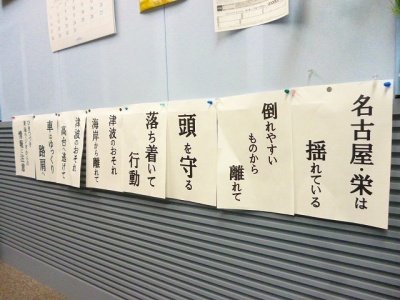 名古屋・栄は
揺れている
倒れやすい
ものから
離れて
頭を守る
落ち着いて
行動
津波のおそれ
海岸から離れて
津波のおそれ
高台へ逃げて
車はゆっくり
路肩へ